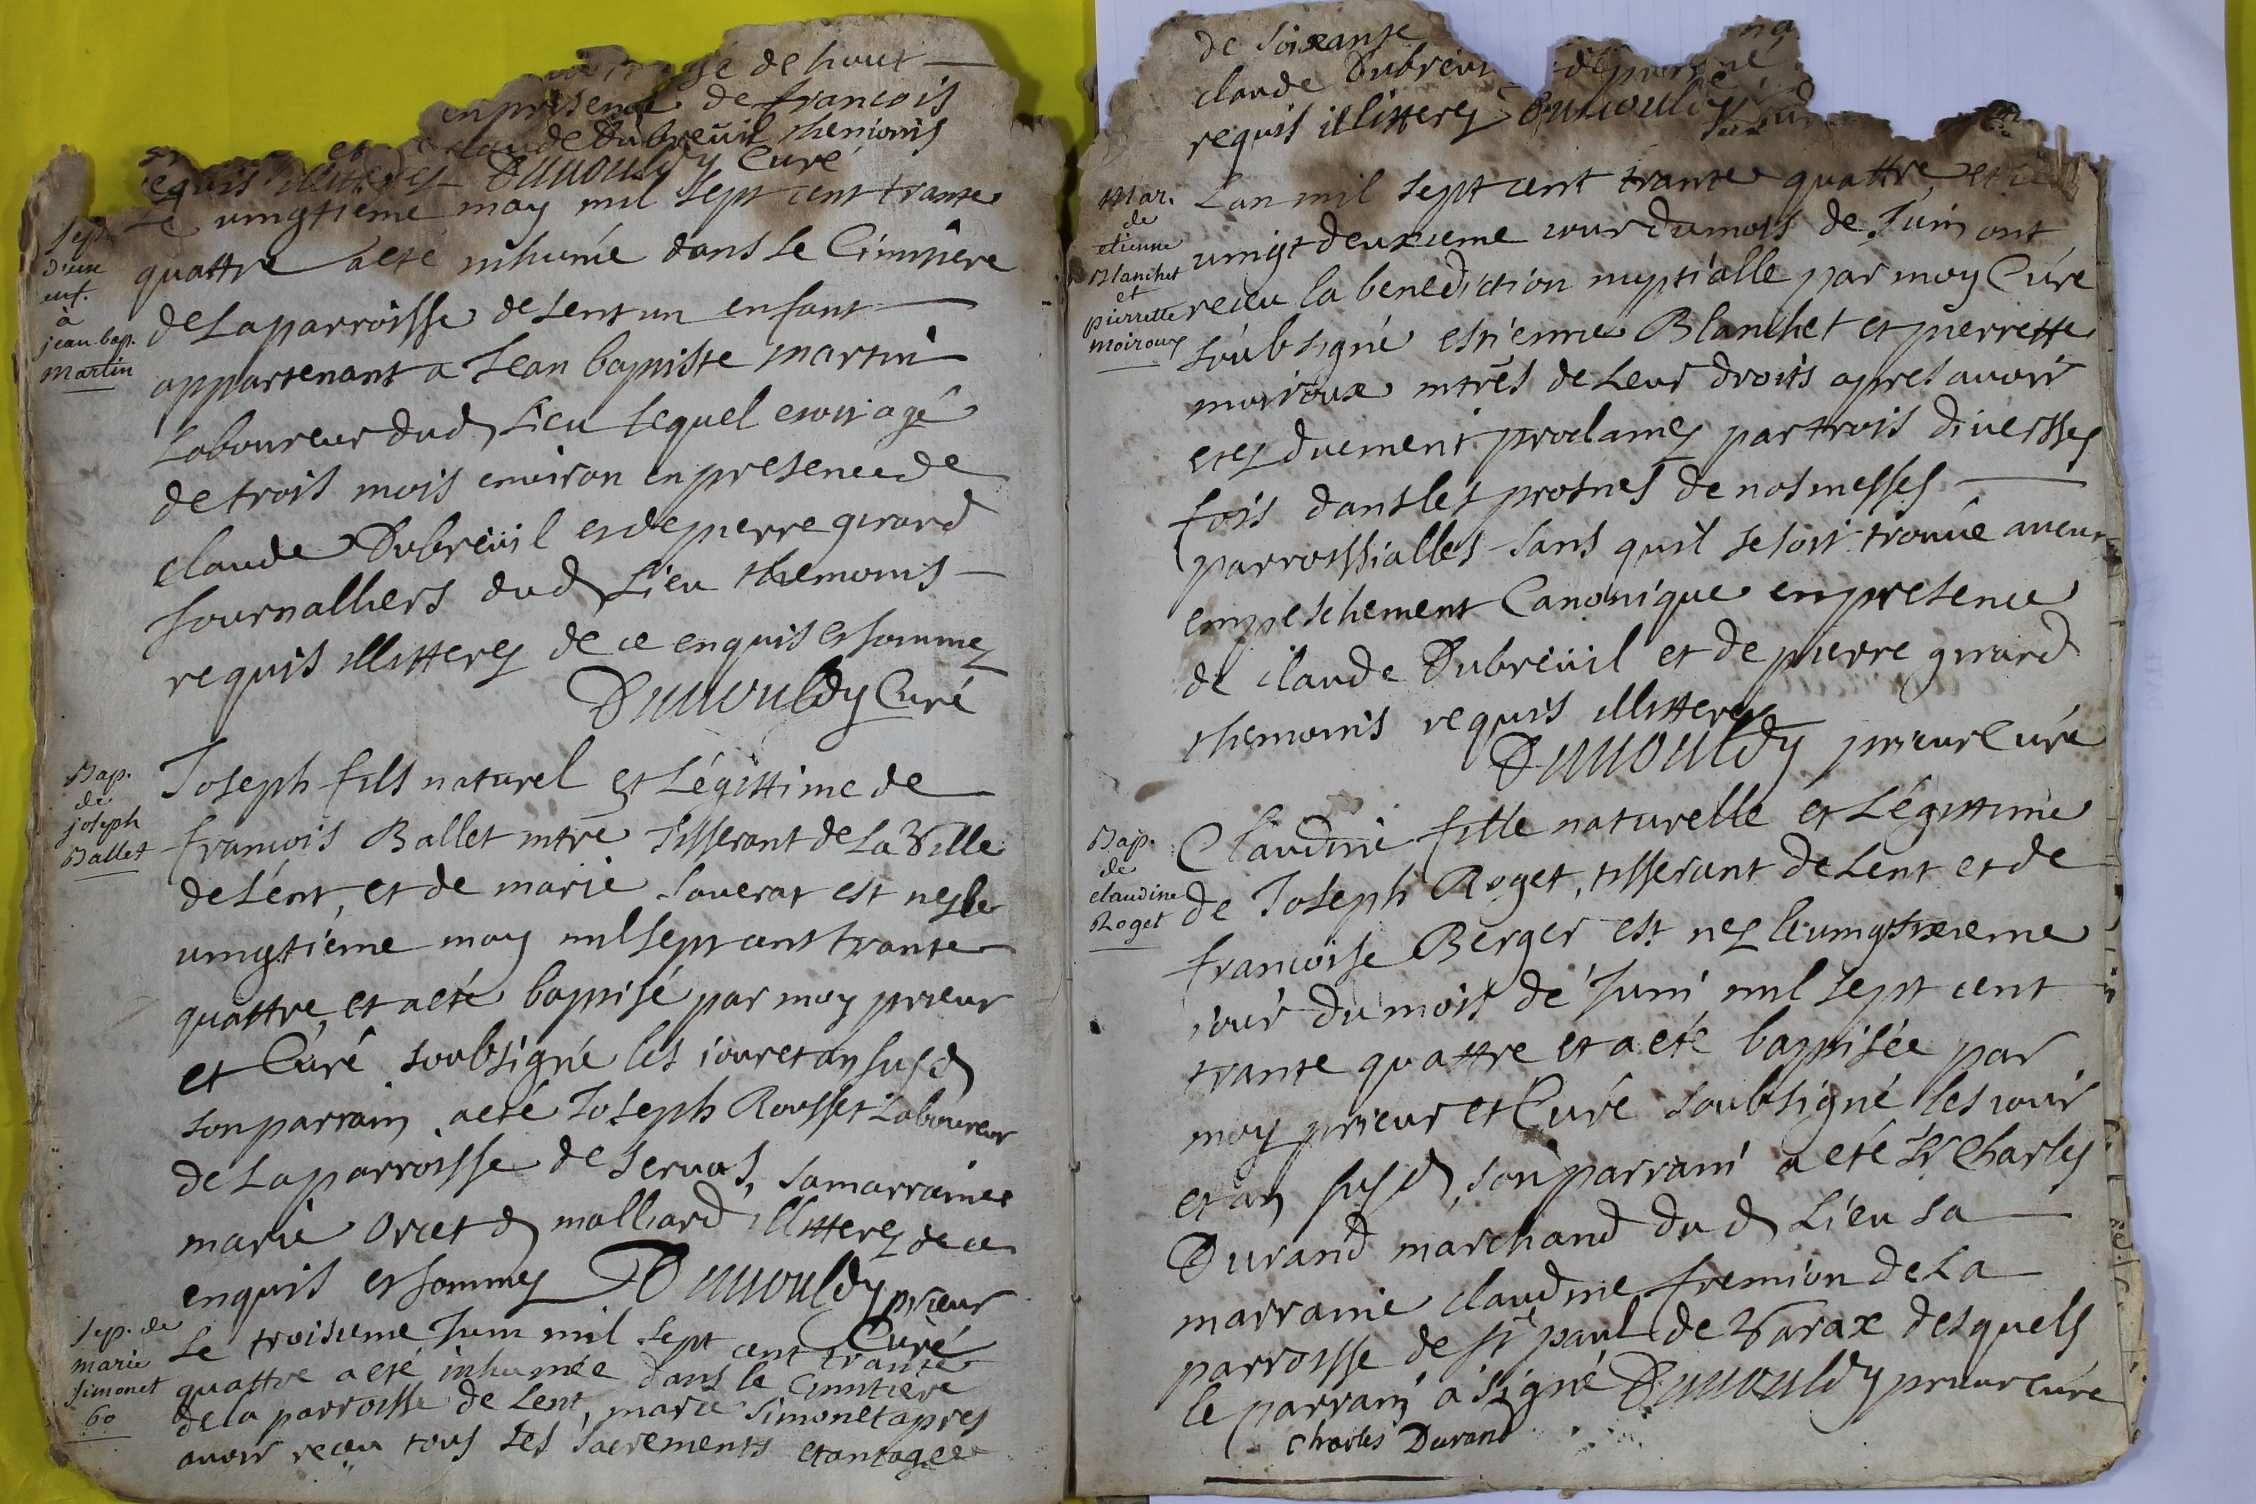 agé de huit
en presence de francois
et claude Dubreüil themoins
requis illitterez Dumouldy Curé
Le vingtieme may mil sept cent trante
quattre a eté inhumé dans le Cimitiere
de La parroisse de Lent un enfant
appartenant a Jean baptiste martin
Laboureur dud Lieu lequel etoit agé
de trois mois environ en presence de
claude Dubreüil et de pierre girard
Journalliers dud Lieu themoins
requis illitterez de ce enquis et sommez
Dumouldy Curé
Sep.
d'une
enf.
à
jean-bap.
martin
Bap.
de
joseph
Ballet
Joseph fils naturel et Légittime de
francois Ballet mtre Tisserant de La Ville
de Lent, et de marie Saverat est nez le
vingtiéme may mil sept cent trante
quattre, et a eté baptisé par moy prieur
et Curé soubsigné les iour et an susd
son parrain a eté Joseph Rousset Laboureur
de La parroisse de Servas, sa marraine
marie orset d malliard illitterez de ce
enquis et sommez Dumouldy prieur
Curé
Sep. de
marie
simonet
60
Le troisieme Juin mil sept cent trante
quattre a eté inhumée dans le Cimitiere
de la parroisse de Lent, marie Simonet apres
avoir reçeu tous Les Sacrements etant agee
de soixante
claude Dubreüil
requis illitterez Dumouldy
Mar.
de
etienne
Blanchet
et
pierrette
moiroux
Lan mil sept cent trante quattre et le
vingt deuxieme iour du mois de Juin ont
receu la benediction nuptialle par moy Curé
soubsigné estienne Blanchet et pierrette
moiroux mtres de Leur droits apres avoir
etez duement proclamez par trois diversses
fois dans les prosnes de nos messes
parroissialles sans quil se soit trouvé aucun
empeschement Canonique en presence
de claude Dubreüil et de pierre girard
themoins requis illitterez
Dumouldy prieur Curé
Bap.
de
claudine
Roget
Claudine fille naturelle et Légittime
de Joseph Roget, tisserant de Lent et de
francoise Berger est nez le vingt sixieme
iour du mois de Juin mil sept cent
trante quattre et a eté baptisée par
moy prieur et Curé soubsigné les iour
et an susd, son parrain a eté Sr Charles
Durand marchand dud Lieu sa
marraine claudine fremion de La
parroisse de St paul de Varax desquels
le parrain a signé Dumouldy prieur curé
Charles Durand